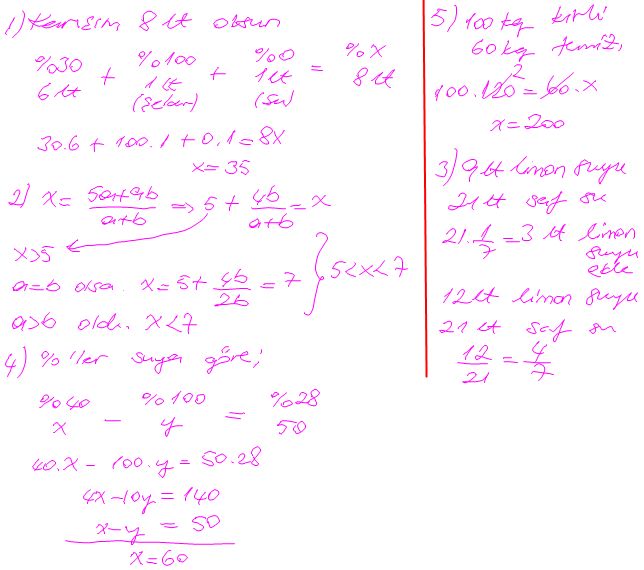 1) Karışım 8 lt olsun
%30 + %100 + %0 = %x
6 lt 1 lt 1 lt 8 lt
(şeker) (su)
30.6 + 100.1 + 0.1 = 8x
x = 35
2) x = 5a+9b / a+b ⇒ 5 + 4b / a+b = x
x>5
a=b olsa. x = 5 + 4b / 2b = 7
a>b oldu. x<7
} 5<x<7
4) %'ler suya göre;
%40 − %100 = %28
x y 50
40.x − 100.y = 50.28
4x − 10y = 140
x − y = 50
x = 60
5) 100 kg kirli
60 kg temiz,
100.120 2 = 60.x
x = 200
3) 9 lt limon suyu
21 lt saf su
21.1/7 = 3 lt limon
suyu
ekle
12 lt limon suyu
21 lt saf su
12/21 = 4/7